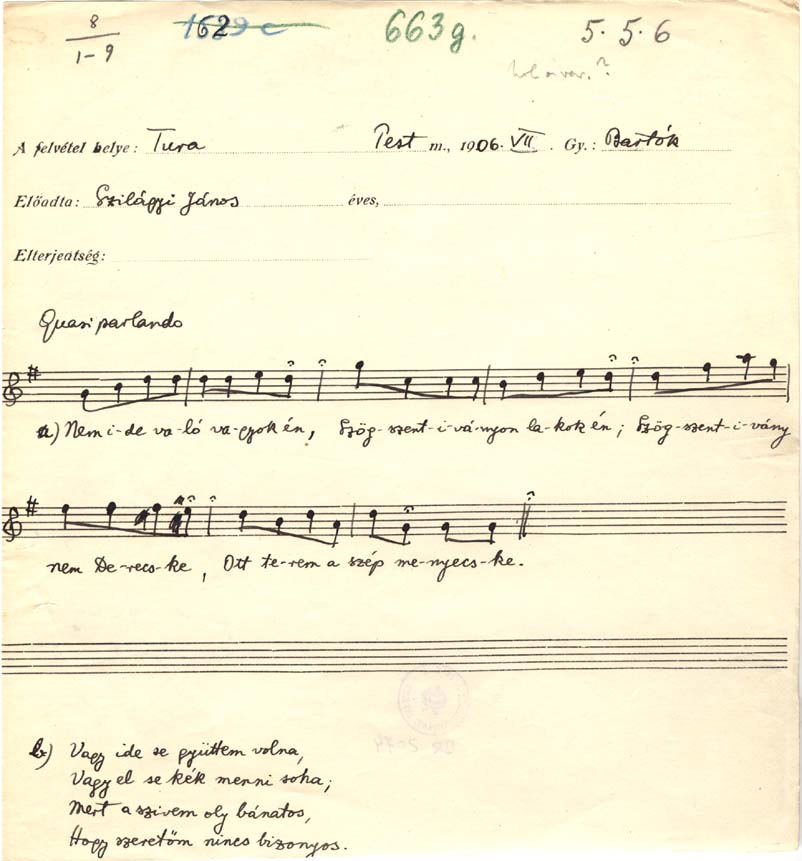 8 1629 c 663g. 5. 5. 6
1-9
A felvétel helye: Tura Pest m., 1906. VII. Gy.: Bartók
Előadta: Szilágyi János éves,
Elterjedtség:
Quasi parlando
a) Nem i-de va-ló va-gyok én, Szög-szent-i-vá-nyon la-kok én; Szög-szent-i-vány
nem De-recs-ke, Ott te-rem a szép me-nyecs-ke.
b) Vagy ide se gyüttem volna,
Vagy el se kék menni soha;
Mert a szivem oly bánatos,
Hogy szeretőm nincs bizonyos.